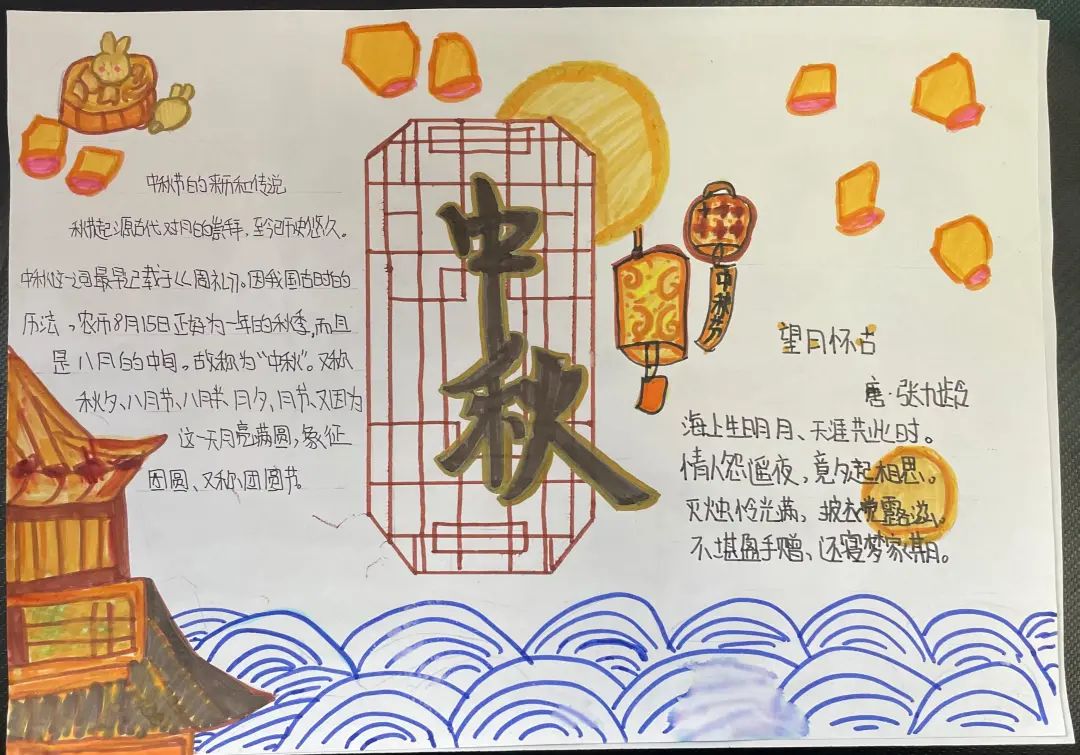 中秋节的来历和传说
秋节起源古代对月的崇拜，至今历史悠久。
中秋这一词最早记载于《周礼》。因我国古时的
历法，农历8月15日正好为一年的秋季，而且
是八月的中旬。故称为“中秋”。又称
秋夕、八月节、八月半、月夕、月节、又因为
这一天月亮满圆，象征
团圆、又称团圆节。
中秋
中秋节
望月怀古
唐·张九龄
海上生明月、天涯共此时。
情人怨遥夜，竟夕起相思。
灭烛怜光满，披衣觉露滋。
不堪盈手赠、还寝梦家期。